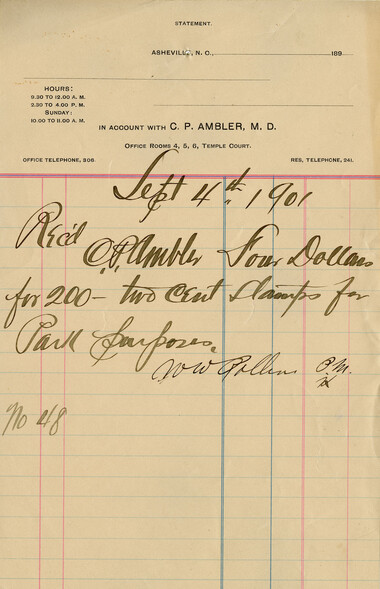 STATEMENT.
ASHEVILLE, N. C., 189
HOURS:
9.30 TO 12.00 A. M.
2.30 TO 4.00 P. M.
SUNDAY:
10.00 TO 11.00 A. M.
IN ACCOUNT WITH C. P. AMBLER, M. D.
OFFICE ROOMS 4, 5, 6, TEMPLE COURT.
OFFICE TELEPHONE, 306. RES. TELEPHONE, 241.
Sept 4th, 1901
Rec'd
C.P. Ambler Four Dollars
for 200 - two cent stamps for
Park purposes.
W W Rollins P.M.
No 48